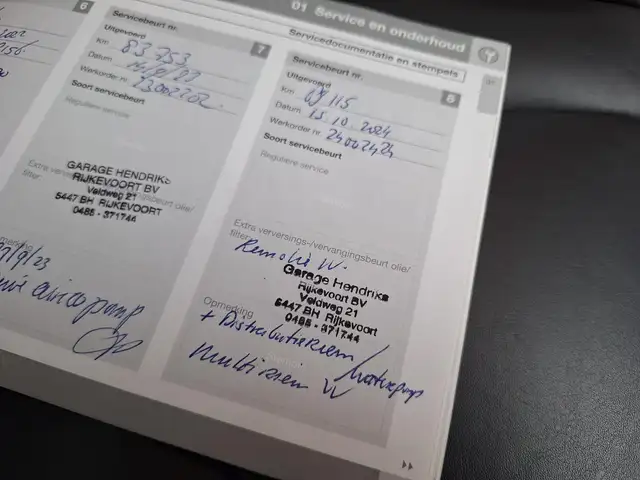 01 Service en onderhoud
Servicedocumentatie en stempels
6
Servicebeurt nr.
7
Uitgevoerd
Km 83 753
Datum
Werkorder nr.
Soort servicebeurt
Reguliere service
Extra verversings-/vervangingsbeurt olie/
filter:
GARAGE HENDRIKS
RIJKEVOORT BV
Veldweg 21
5447 BH RIJKEVOORT
0485 - 371744
/9/23
Servicebeurt nr.
8
Uitgevoerd
Km 115
Datum 15.10.2024
Werkorder nr. 24002424
Soort servicebeurt
Reguliere service
Extra verversings-/vervangingsbeurt olie/
filter:
Remolie W.
Garage Hendriks
Rijkevoort BV
Veldweg 21
5447 BH Rijkevoort
0485 - 371744
Opmerking
+ Distributieriem / waterpomp
Multiriem W